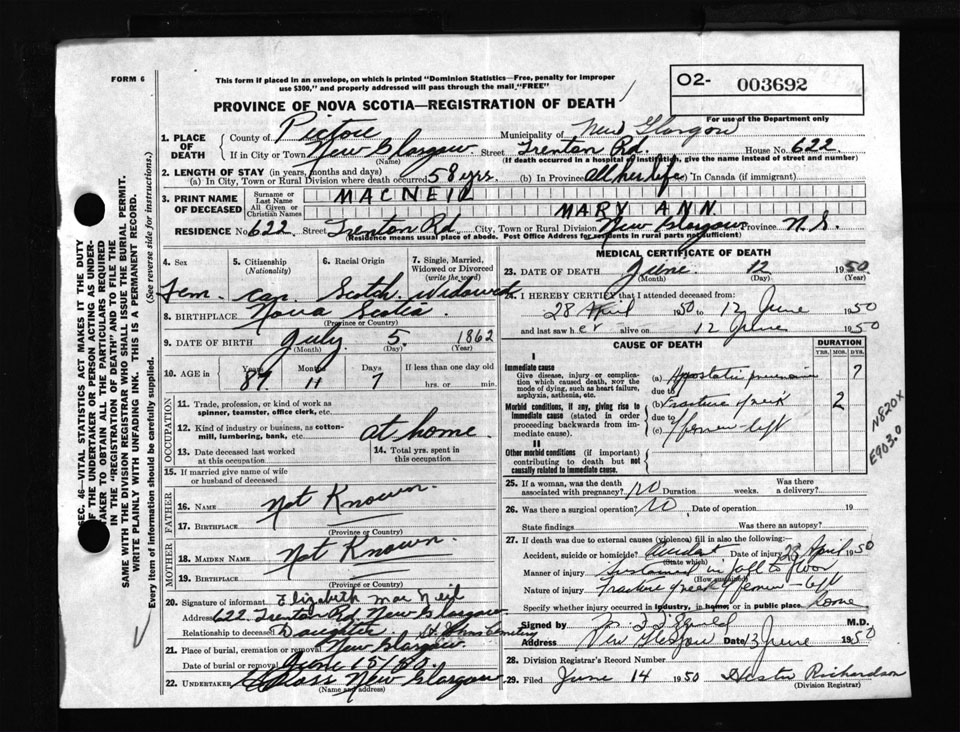 FORM 6
This form if placed in an envelope, on which is printed "Dominion Statistics—Free, penalty for improper
use $300," and properly addressed will pass through the mail "FREE"
O2- 003692
PROVINCE OF NOVA SCOTIA—REGISTRATION OF DEATH
For use of the Department only
1. PLACE OF DEATH
County of Pictou Municipality of New Glasgow
If in City or Town New Glasgow Street Trenton Rd. House No. 622
(Name) (If death occurred in a hospital or institution, give the name instead of street and number)
2. LENGTH OF STAY (in years, months and days)
(a) In City, Town or Rural Division where death occurred 58 yrs. (b) In Province all her life (c) In Canada (if immigrant)
3. PRINT NAME OF DECEASED
Surname or Last Name MACNEIL
All Given or Christian Names MARY ANN
RESIDENCE No. 622 Street Trenton Rd. City, Town or Rural Division New Glasgow Province N.S.
(Residence means usual place of abode. Post Office Address for residents in rural parts not sufficient)
4. Sex Fem.
5. Citizenship (Nationality) Can.
6. Racial Origin Scotch
7. Single, Married, Widowed or Divorced (write the word) Widowed
8. BIRTHPLACE Nova Scotia
(Province or Country)
9. DATE OF BIRTH July 5. 1862
(Month) (Day) (Year)
10. AGE in Years 87 Months 11 Days 7 If less than one day old
hrs. or min.
OCCUPATION
11. Trade, profession or kind of work as spinner, teamster, office clerk, etc.
12. Kind of industry or business, as cotton-mill, lumbering, bank, etc. at home
13. Date deceased last worked at this occupation
14. Total yrs. spent in this occupation
15. If married give name of wife or husband of deceased
FATHER
16. NAME Not Known
17. BIRTHPLACE
(Province or Country)
MOTHER
18. MAIDEN NAME Not Known
19. BIRTHPLACE
(Province or Country)
20. Signature of informant Elizabeth Mac Neil
Address 622 Trenton Rd, New Glasgow
Relationship to deceased Daughter
21. Place of burial, cremation or removal New Glasgow Cemetery
Date of burial or removal June 15/50
22. UNDERTAKER New Glasgow
(Name and address)
MEDICAL CERTIFICATE OF DEATH
23. DATE OF DEATH June 12 1950
(Month) (Day) (Year)
24. I HEREBY CERTIFY that I attended deceased from:
28 April 1950 to 12 June 1950
and last saw her alive on 12 June 1950
CAUSE OF DEATH DURATION
YRS. MOS. DYS.
I
Immediate cause
Give disease, injury or complication which caused death, NOT the mode of dying, such as heart failure, asphyxia, asthenia, etc.
(a) Hypostatic pneumonia 7
due to
Morbid conditions, if any, giving rise to immediate cause (stated in order proceeding backwards from immediate cause).
(b) Fracture of neck 2
due to
(c) of femur left
II
Other morbid conditions (if important) contributing to death but not causally related to immediate cause.
N820X
E903.0
25. If a woman, was the death associated with pregnancy? No Duration weeks. Was there a delivery?
26. Was there a surgical operation? No Date of operation 19
State findings Was there an autopsy?
27. If death was due to external causes (violence) fill in also the following:
Accident, suicide or homicide? Accident Date of injury 28 April 1950
(State which)
Manner of injury Sustained in fall to floor
(How sustained)
Nature of injury Fracture of neck of femur left
Specify whether injury occurred in industry, in home, or in public place. home
Signed by M.D.
Address New Glasgow Date 13 June 1950
28. Division Registrar's Record Number
29. Filed June 14 1950 Hester Richardson
(Division Registrar)
SEC. 46—VITAL STATISTICS ACT MAKES IT THE DUTY
OF THE UNDERTAKER OR PERSON ACTING AS UNDERTAKER TO OBTAIN ALL THE PARTICULARS REQUIRED
IN THE "REGISTRATION OF DEATH" AND TO FILE THE
SAME WITH THE DIVISION REGISTRAR WHO SHALL ISSUE THE BURIAL PERMIT.
WRITE PLAINLY WITH UNFADING INK. THIS IS A PERMANENT RECORD.
Every item of information should be carefully supplied. (See reverse side for instructions.)